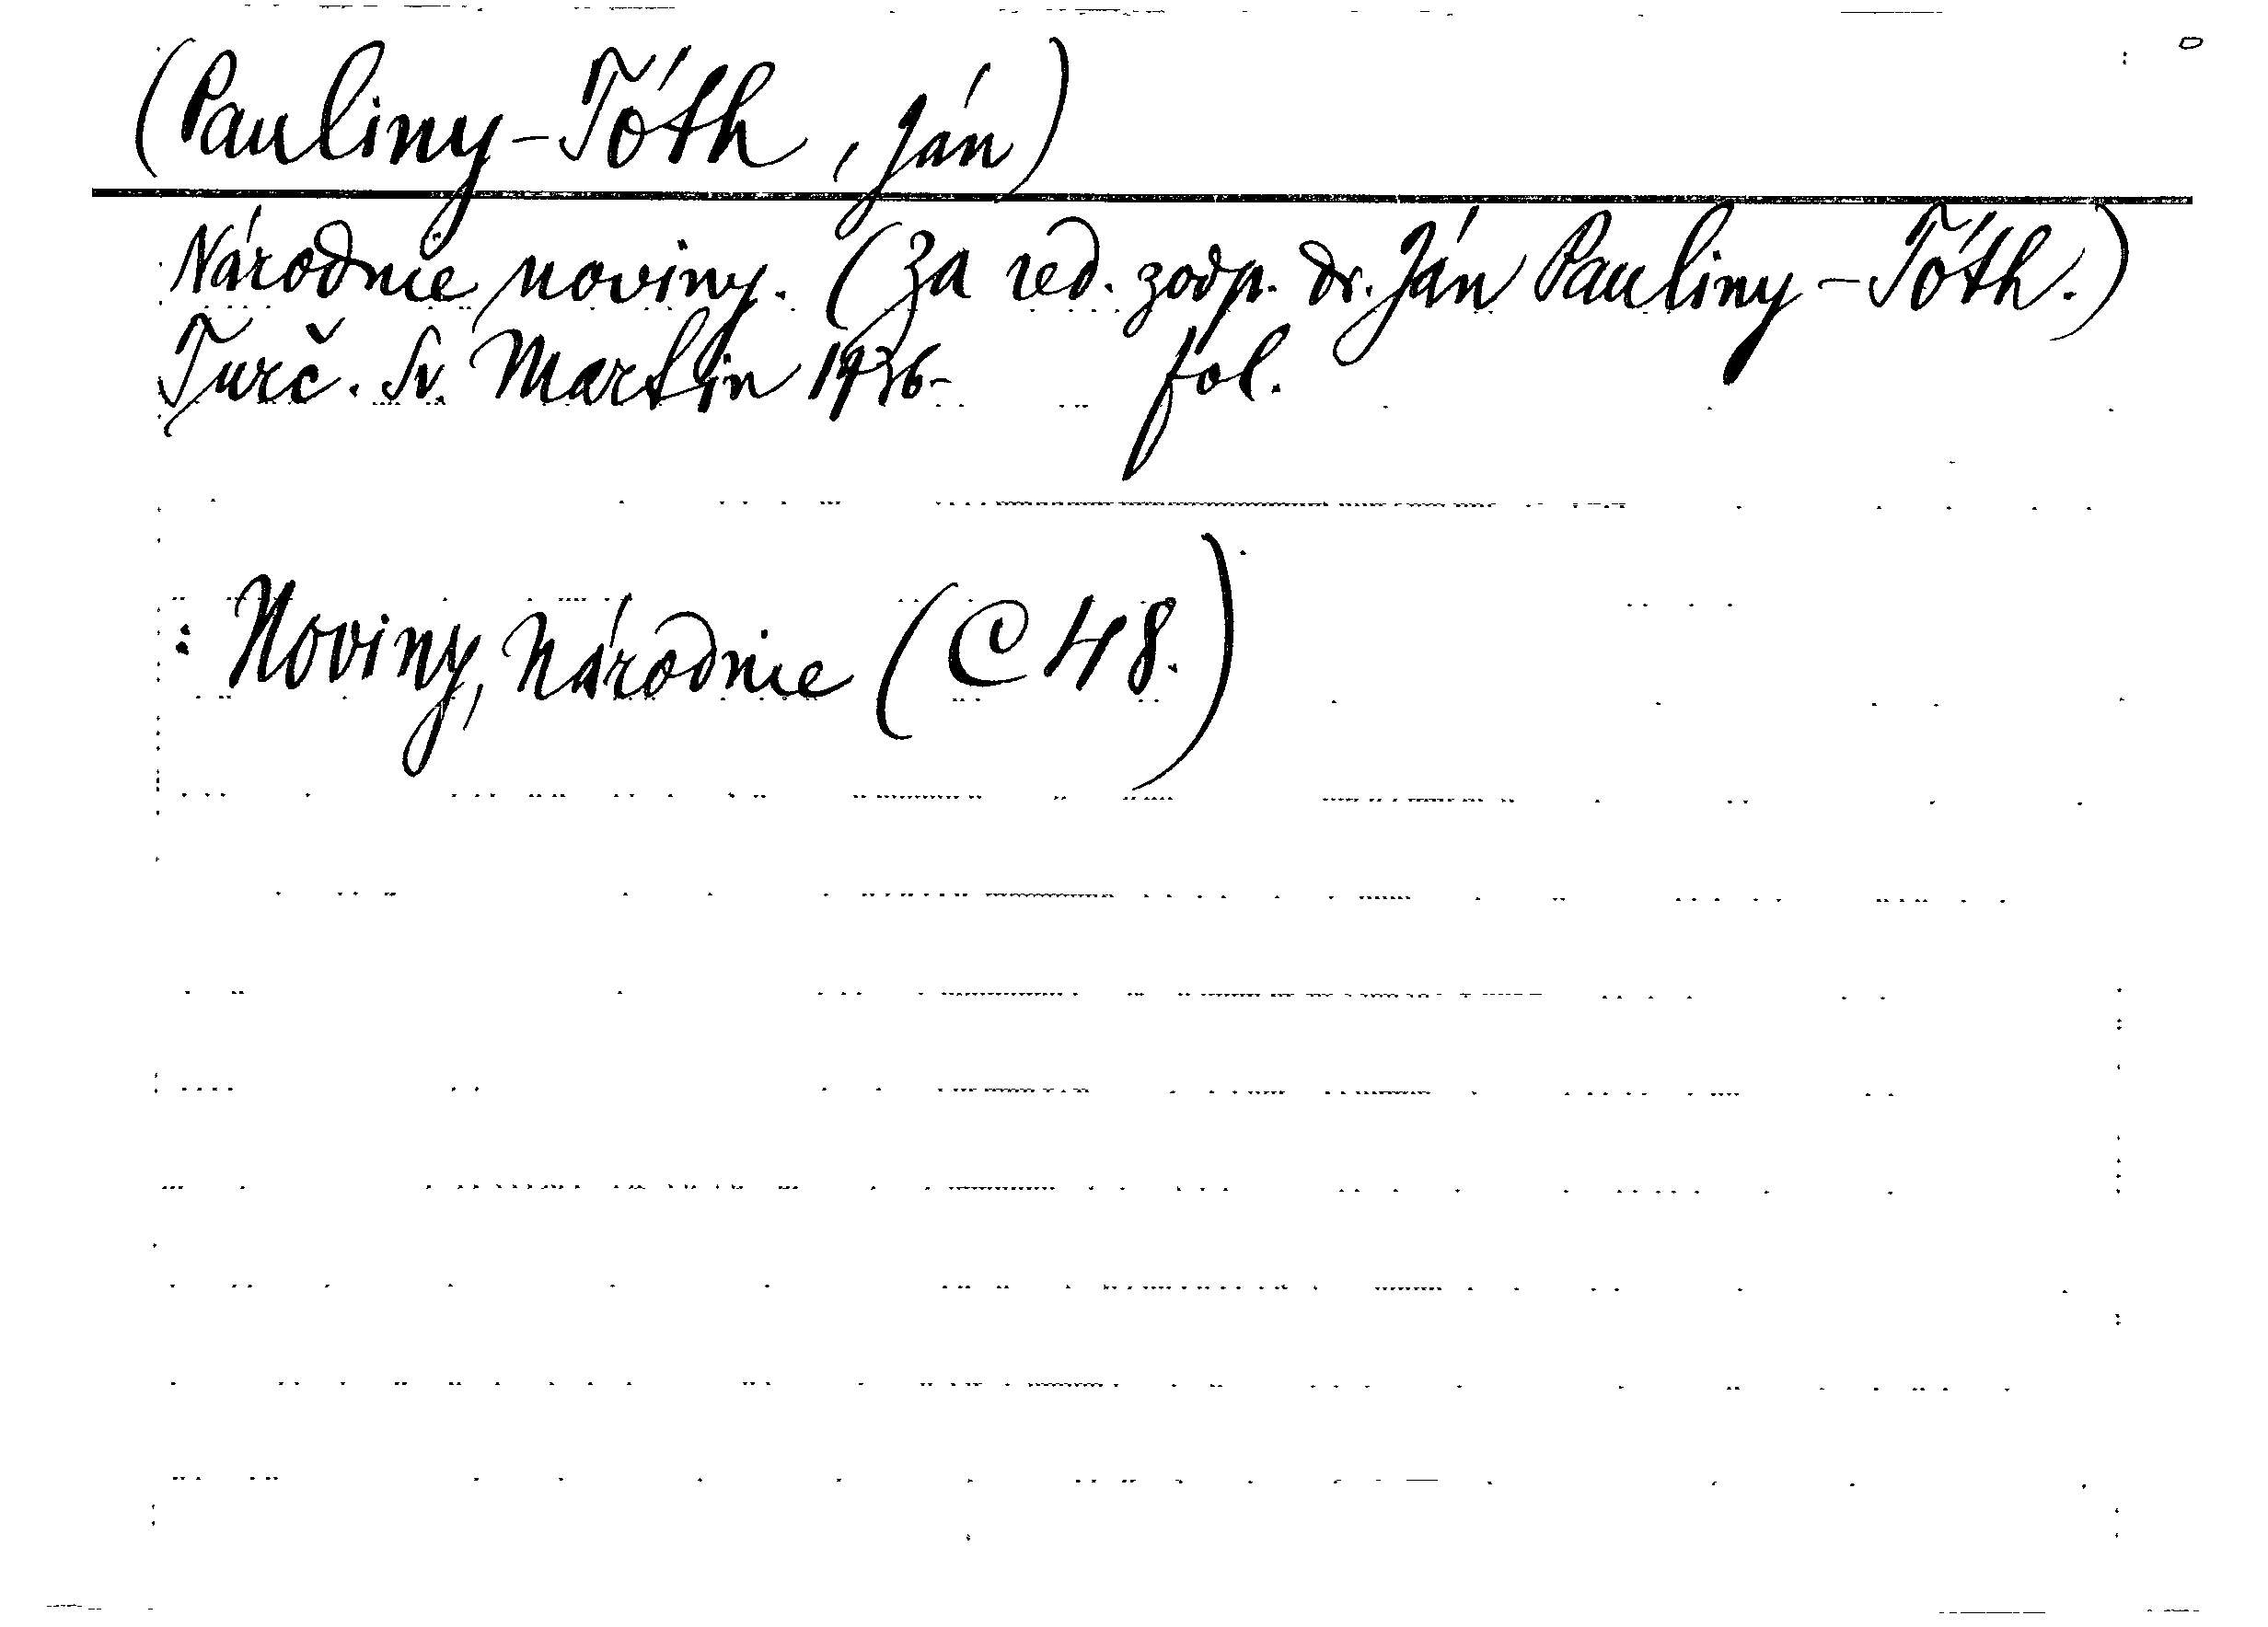 (Pauliny-Tóth, Ján)
Národnie noviny. (Za red. zodp. dr. Ján Pauliny-Tóth.)
Turč. Sv. Martin 1936- fol.
: Noviny, Národnie (C 48.)